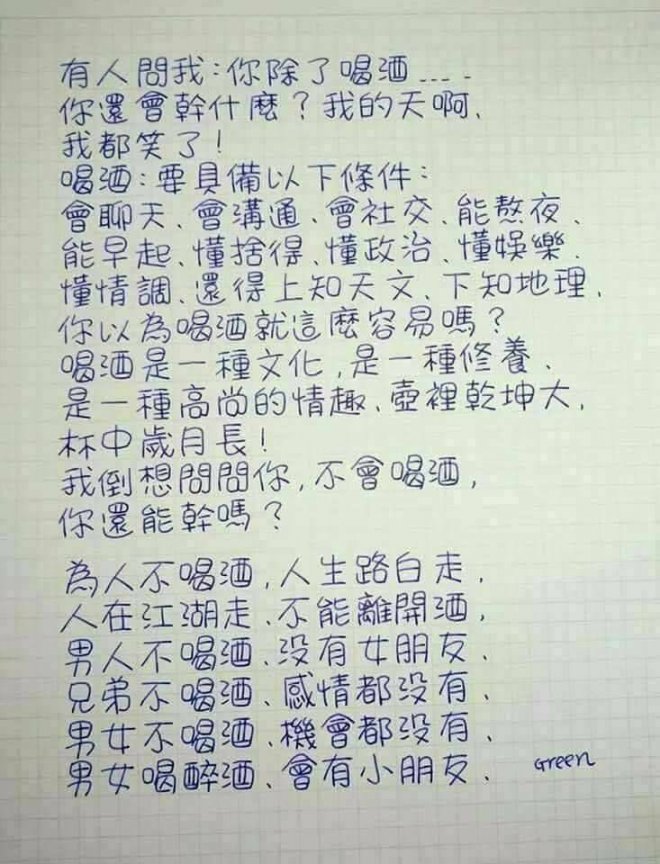 有人問我：你除了喝酒....
你還會幹什麼？我的天啊、
我都笑了！
喝酒：要具備以下條件：
會聊天、會溝通、會社交、能熬夜、
能早起、懂捨得、懂政治、懂娛樂、
懂情調、還得上知天文、下知地理、
你以為喝酒就這麼容易嗎？
喝酒是一種文化，是一種修養、
是一種高尚的情趣、壺裡乾坤大，
杯中歲月長！
我倒想問問你，不會喝酒，
你還能幹嗎？
為人不喝酒，人生路白走，
人在江湖走、不能離開酒，
男人不喝酒、没有女朋友、
兄弟不喝酒、感情都没有、
男女不喝酒、機會都没有、
男女喝醉酒、會有小朋友、
Green